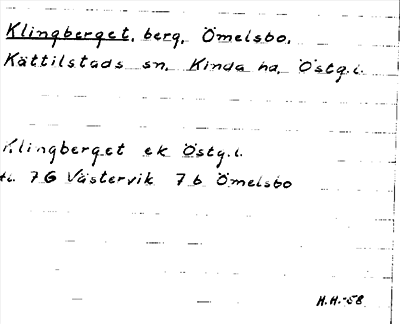 Klingberget, berg, Ömelsbo,
Kättilstads sn, Kinda hd, Östg.l.
Klingberget ek Östg.l.
bl. 7G Västervik 7b Ömelsbo
H.H.-58